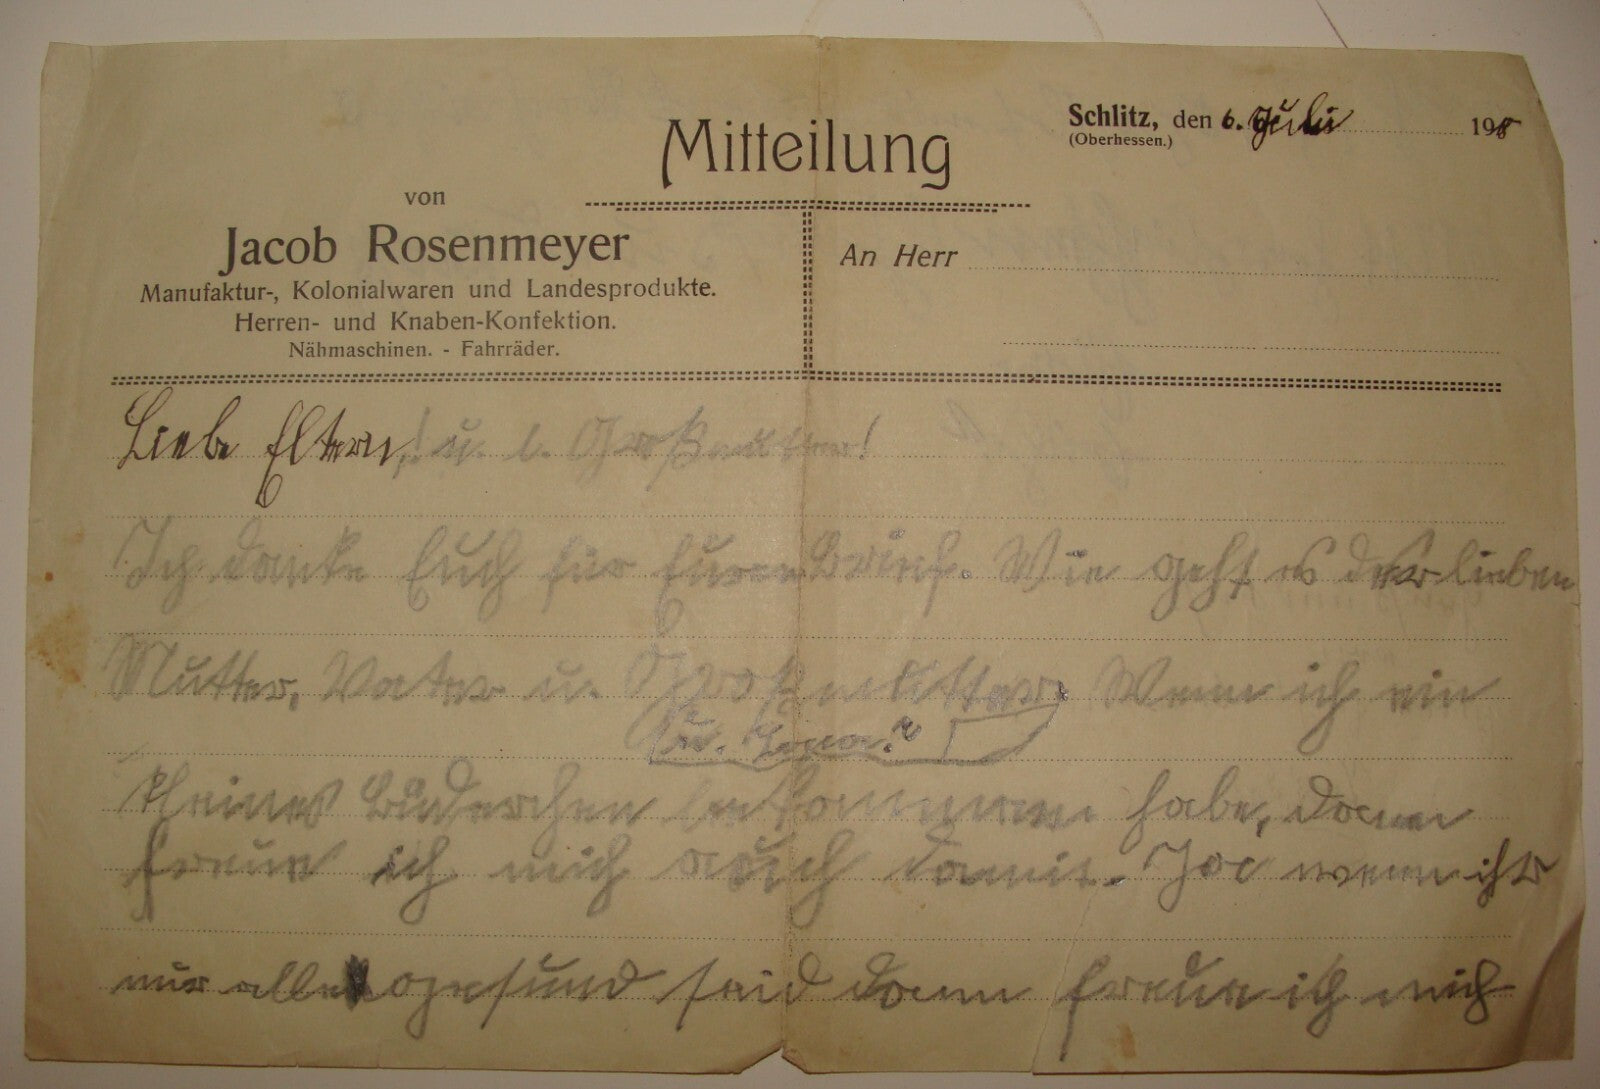 Schlitz, den 6. Juli 198
(Oberhessen.)
Mitteilung
von
Jacob Rosenmeyer
Manufaktur-, Kolonialwaren und Landesprodukte.
Herren- und Knaben-Konfektion.
Nähmaschinen. - Fahrräder.
An Herr
Liebe Eltern,! u. l. Großmutter!
Ich danke Euch für Euren Brief. Wie geht es der lieben
Mutter, Vater u. Großmutter. Wenn ich ein
u.
kleines Brüderchen bekommen habe, dann
freue ich mich auch damit. Ja wenn ihr
nur alle gesund seid dann freue ich mich